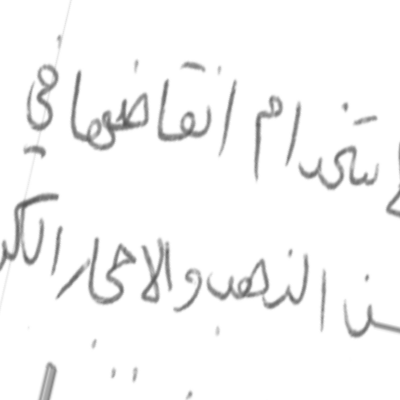 ستخدام انقاضها في
من الذهب والاحجار الك